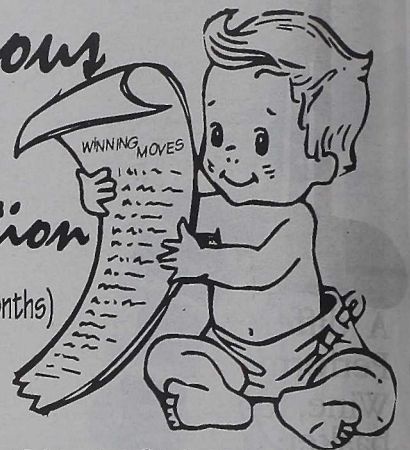 ous
WINNING MOVES
ion
nths)